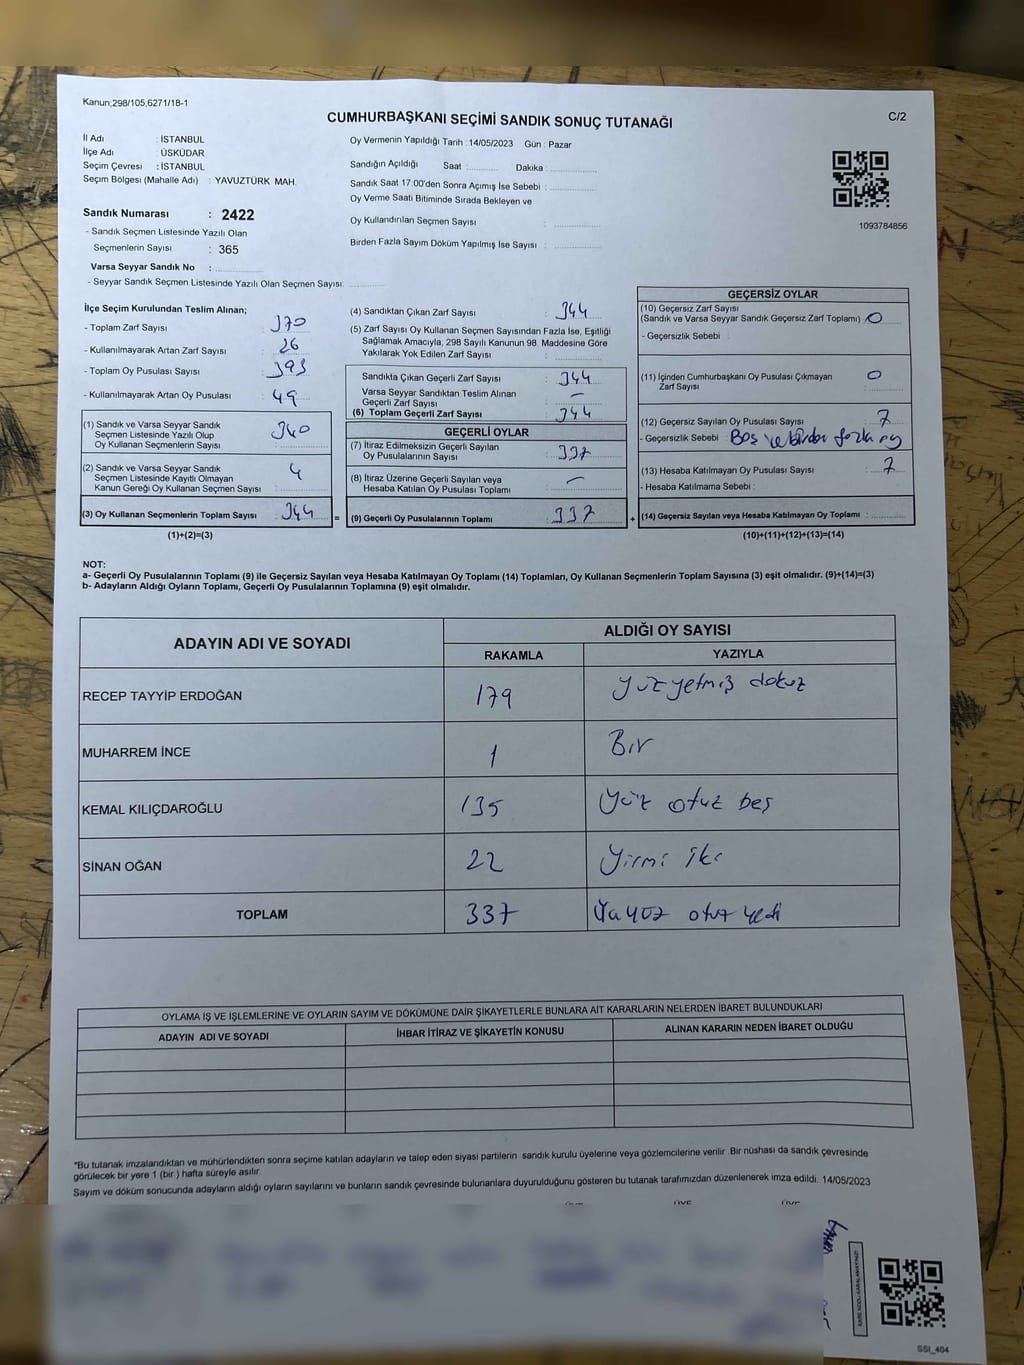 Kanun;298/105,6271/18-1
CUMHURBAŞKANI SEÇİMİ SANDIK SONUÇ TUTANAĞI
C/2
İl Adı : İSTANBUL
İlçe Adı : ÜSKÜDAR
Seçim Çevresi : İSTANBUL
Seçim Bölgesi (Mahalle Adı) : YAVUZTÜRK MAH.
Sandık Numarası : 2422
- Sandık Seçmen Listesinde Yazılı Olan
Seçmenlerin Sayısı : 365
Varsa Seyyar Sandık No :
- Seyyar Sandık Seçmen Listesinde Yazılı Olan Seçmen Sayısı:
Oy Vermenin Yapıldığı Tarih :14/05/2023 Gün : Pazar
Sandığın Açıldığı Saat : Dakika :
Sandık Saat 17:00'den Sonra Açımış İse Sebebi :
Oy Verme Saati Bitiminde Sırada Bekleyen ve
Oy Kullandırılan Seçmen Sayısı :
Birden Fazla Sayım Döküm Yapılmış İse Sayısı :
1093784856
İlçe Seçim Kurulundan Teslim Alınan;
- Toplam Zarf Sayısı : 370
- Kullanılmayarak Artan Zarf Sayısı : 26
- Toplam Oy Pusulası Sayısı : 393
- Kullanılmayarak Artan Oy Pusulası : 49
(1) Sandık ve Varsa Seyyar Sandık
Seçmen Listesinde Yazılı Olup
Oy Kullanan Seçmenlerin Sayısı : 340
(2) Sandık ve Varsa Seyyar Sandık
Seçmen Listesinde Kayıtlı Olmayan
Kanun Gereği Oy Kullanan Seçmen Sayısı : 4
(3) Oy Kullanan Seçmenlerin Toplam Sayısı : 344
(1)+(2)=(3)
=
(4) Sandıktan Çıkan Zarf Sayısı : 344
(5) Zarf Sayısı Oy Kullanan Seçmen Sayısından Fazla İse, Eşitliği
Sağlamak Amacıyla; 298 Sayılı Kanunun 98. Maddesine Göre
Yakılarak Yok Edilen Zarf Sayısı :
Sandıkta Çıkan Geçerli Zarf Sayısı : 344
Varsa Seyyar Sandıktan Teslim Alınan
Geçerli Zarf Sayısı : –
(6) Toplam Geçerli Zarf Sayısı : 344
GEÇERLİ OYLAR
(7) İtiraz Edilmeksizin Geçerli Sayılan
Oy Pusulalarının Sayısı : 337
(8) İtiraz Üzerine Geçerli Sayılan veya
Hesaba Katılan Oy Pusulası Toplamı : –
(9) Geçerli Oy Pusulalarının Toplamı : 337
+
GEÇERSİZ OYLAR
(10) Geçersiz Zarf Sayısı
(Sandık ve Varsa Seyyar Sandık Geçersiz Zarf Toplamı) : 0
- Geçersizlik Sebebi :
(11) İçinden Cumhurbaşkanı Oy Pusulası Çıkmayan
Zarf Sayısı : 0
(12) Geçersiz Sayılan Oy Pusulası Sayısı : 7
- Geçersizlik Sebebi : Boş ve birden fazla oy
(13) Hesaba Katılmayan Oy Pusulası Sayısı : 7
- Hesaba Katılmama Sebebi :
(14) Geçersiz Sayılan veya Hesaba Katılmayan Oy Toplamı :
(10)+(11)+(12)+(13)=(14)
NOT:
a- Geçerli Oy Pusulalarının Toplamı (9) ile Geçersiz Sayılan veya Hesaba Katılmayan Oy Toplamı (14) Toplamları, Oy Kullanan Seçmenlerin Toplam Sayısına (3) eşit olmalıdır. (9)+(14)=(3)
b- Adayların Aldığı Oyların Toplamı, Geçerli Oy Pusulalarının Toplamına (9) eşit olmalıdır.
ADAYIN ADI VE SOYADI
ALDIĞI OY SAYISI
RAKAMLA YAZIYLA
RECEP TAYYİP ERDOĞAN 179 Yüz yetmiş dokuz
MUHARREM İNCE 1 Bir
KEMAL KILIÇDAROĞLU 135 Yüz otuz beş
SİNAN OĞAN 22 Yirmi iki
TOPLAM 337 Üçyüz otuz yedi
OYLAMA İŞ VE İŞLEMLERİNE VE OYLARIN SAYIM VE DÖKÜMÜNE DAİR ŞİKAYETLERLE BUNLARA AİT KARARLARIN NELERDEN İBARET BULUNDUKLARI
ADAYIN ADI VE SOYADI İHBAR İTİRAZ VE ŞİKAYETİN KONUSU ALINAN KARARIN NEDEN İBARET OLDUĞU
*Bu tutanak imzalandıktan ve mühürlendikten sonra seçime katılan adayların ve talep eden siyasi partilerin sandık kurulu üyelerine veya gözlemcilerine verilir .Bir nüshası da sandık çevresinde
görülecek bir yere 1 (bir ) hafta süreyle asılır.
Sayım ve döküm sonucunda adayların aldığı oyların sayılarını ve bunların sandık çevresinde bulunanlara duyurulduğunu gösteren bu tutanak tarafımızdan düzenlenerek imza edildi. 14/05/2023
ÜYE ÜYE
SSI_404